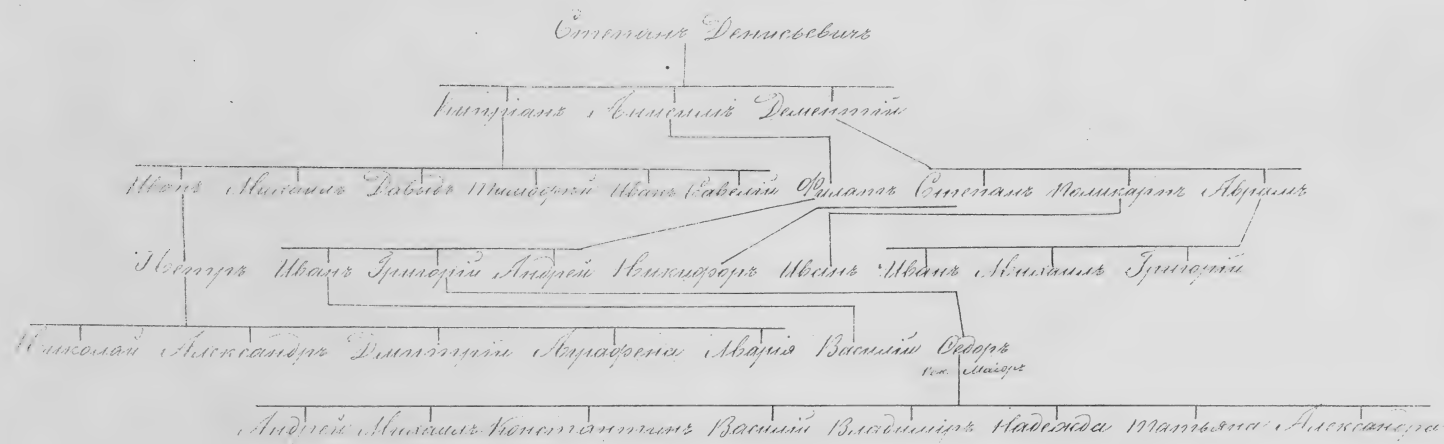 Степанъ Денисьевичъ
Кипріанъ Анисимъ Дементій
Иванъ Михаилъ Давыдъ Тимофей Иванъ Савелій Филатъ Степанъ Поликарпъ Абрамъ
Петръ Иванъ Григорій Андрей Никифоръ Иванъ Иванъ Михаилъ Григорій
Николай Александръ Дмитрій Аграфена Марія Василій Ѳедоръ
сек. Маіоръ
Андрей Михаилъ Константинъ Василій Владиміръ Надежда Татьяна Александра